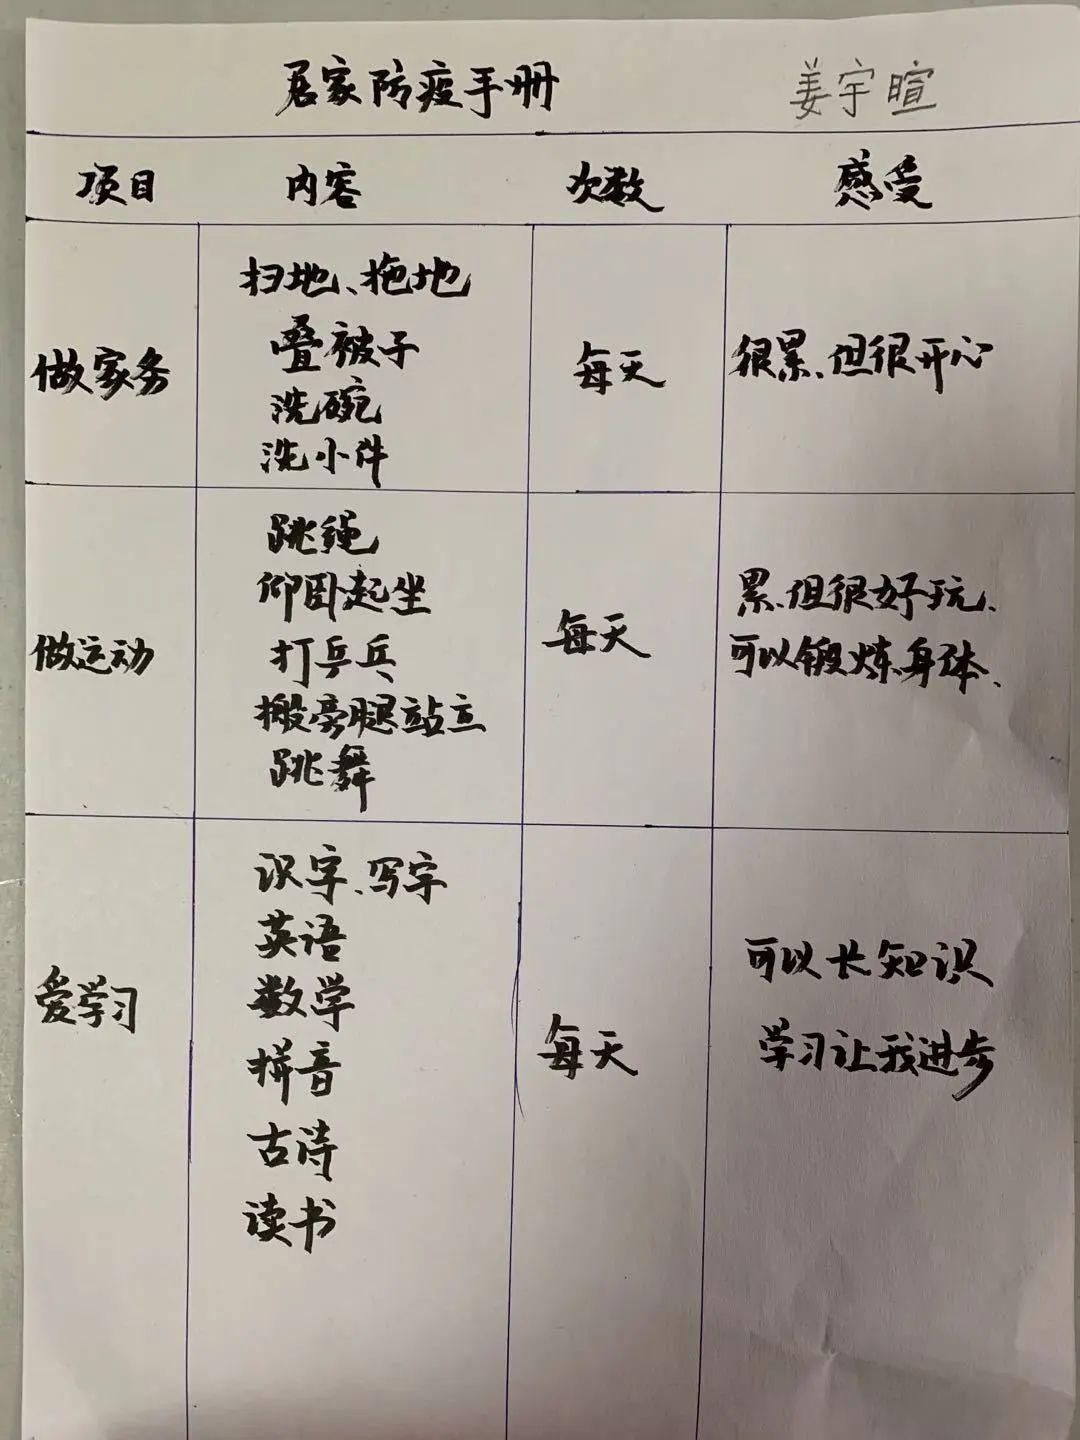 居家防疫手册 姜宇暄
项目 内容 次数 感受
做家务
扫地、拖地
叠被子
洗碗
洗小件
每天
很累、但很开心
做运动
跳绳
仰卧起坐
打乒乓
搬旁腿站立
跳舞
每天
累、但很好玩、
可以锻炼身体、
爱学习
识字、写字
英语
数学
拼音
古诗
读书
每天
可以长知识
学习让我进步